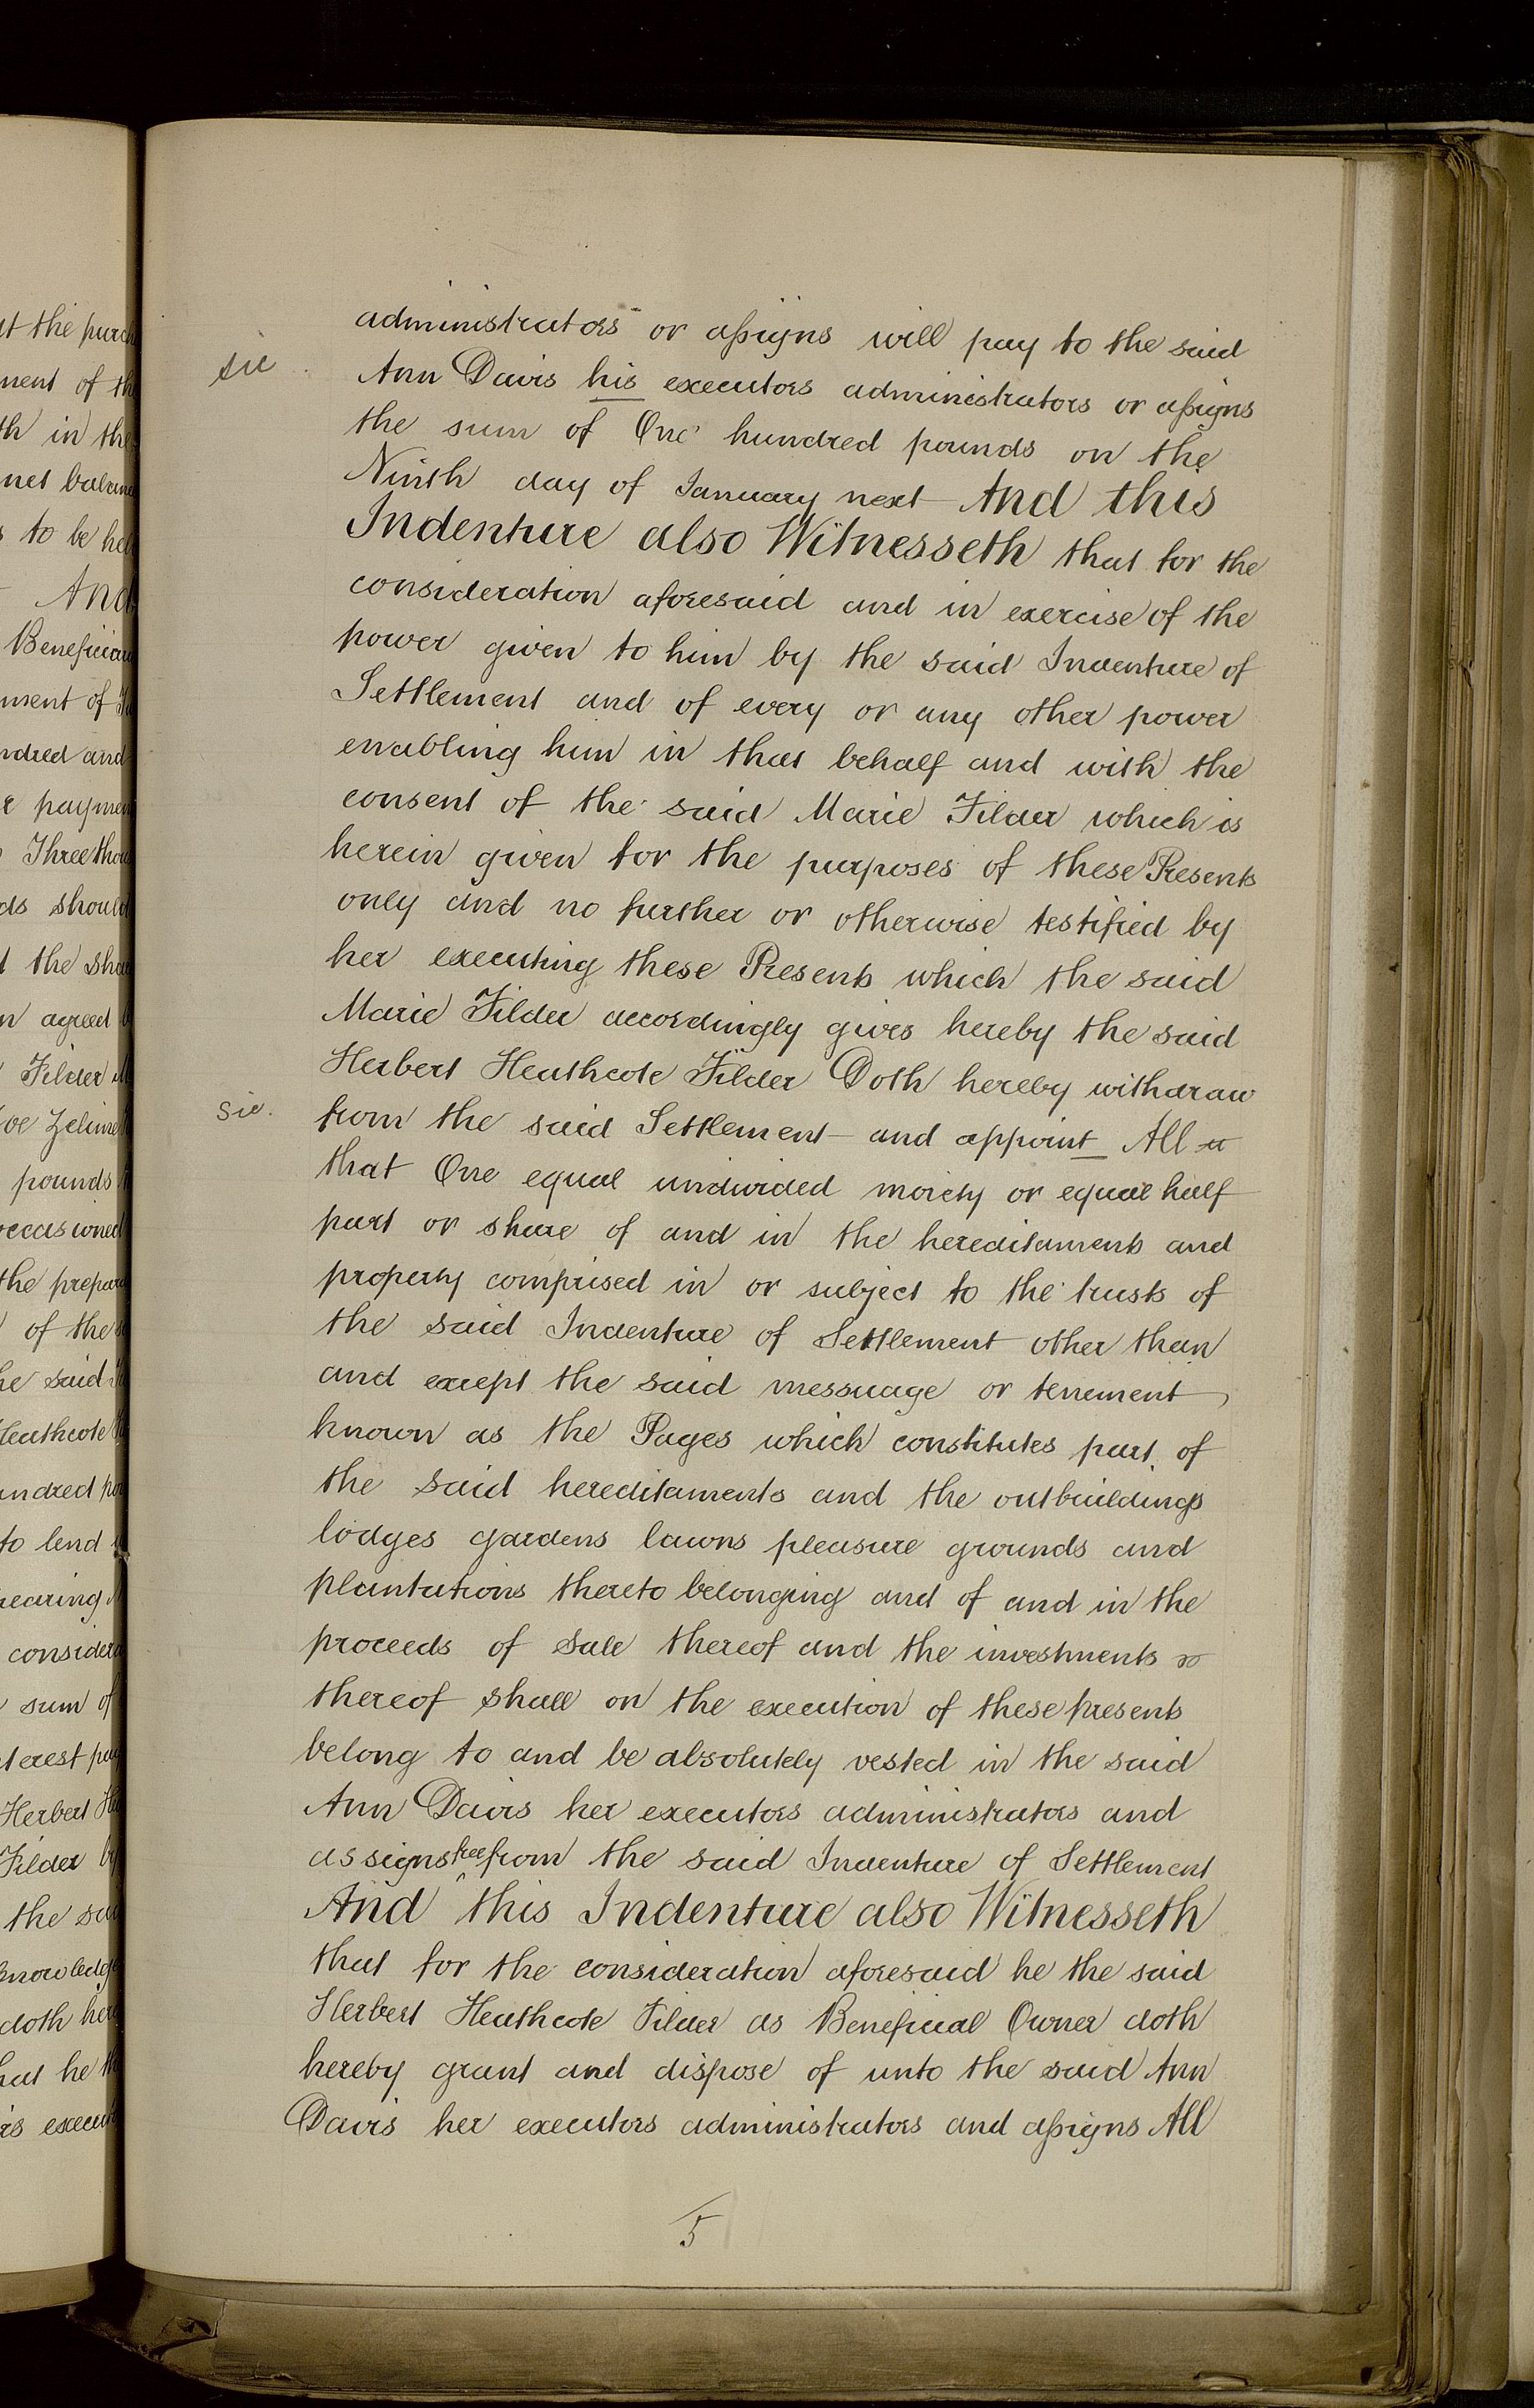 administrators or assigns will pay to the said
sic
Ann Davis his executors administrators or assigns
the sum of One hundred pounds on the
Ninth day of January next And this
Indenture also Witnesseth that for the
consideration aforesaid and in exercise of the
power given to him by the said Indenture of
Settlement and of every or any other power
enabling him in that behalf and with the
consent of the said Marie Filder which is
herein given for the purposes of these Presents
only and no further or otherwise testified by
her executing these Presents which the said
Marie Filder accordingly gives hereby the said
Herbert Heathcote Filder Doth hereby withdraw
sic.
from the said Settlement and appoint All
that One equal undivided moiety or equal half
part or share of and in the hereditaments and
property comprised in or subject to the trusts of
the said Indenture of Settlement other than
and except the said messuage or tenement
known as the Pages which constitutes part of
the said hereditaments and the outbuildings
lodges gardens lawns pleasure grounds and
plantations thereto belonging and of and in the
proceeds of sale thereof and the investments
thereof shall on the execution of these presents
belong to and be absolutely vested in the said
Ann Davis her executors administrators and
assigns free from the said Indenture of Settlement
And this Indenture also Witnesseth
that for the consideration aforesaid he the said
Herbert Heathcote Filder as Beneficial Owner doth
hereby grant and dispose of unto the said Ann
Davis her executors administrators and assigns All
5